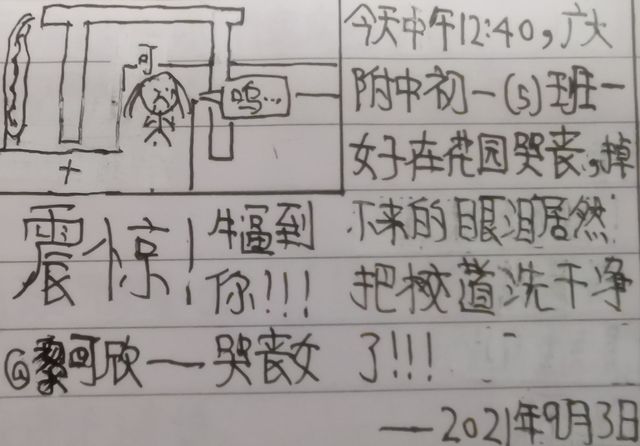 可
呜…
十
今天中午12:40,广大
附中初一(5)班一
女子在花园哭丧,掉
下来的眼泪居然
把校道洗干净
了!!!
震惊!
牛逼到
你!!!
@黎可欣——哭丧女
——2021年9月3日